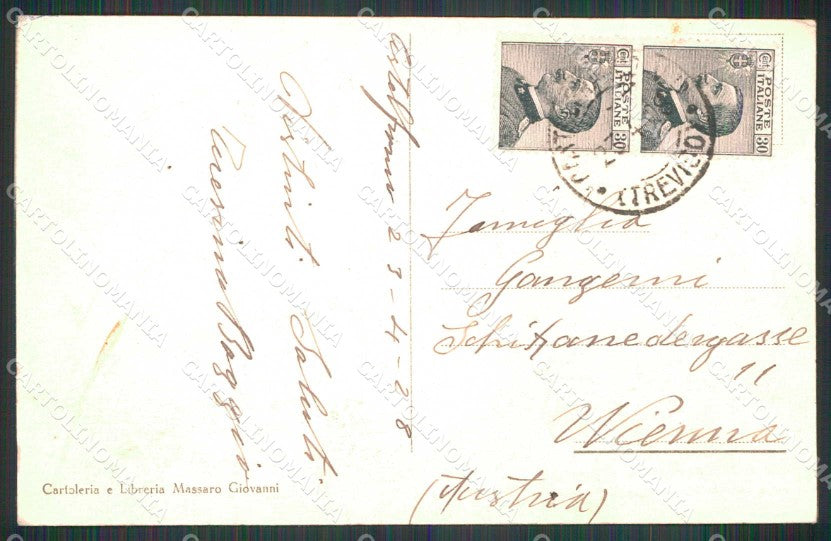 Castelfranco 23-4-28
Distinti Saluti
Baggio
Cartoleria e Libreria Massaro Giovanni
Cent. 30
POSTE
ITALIANE
Cent. 30
POSTE
ITALIANE
(TREVISO)
Famiglia
Gangemi
Schikanedergasse
11
Wienna
(Austria)
CARTOLINOMANIA